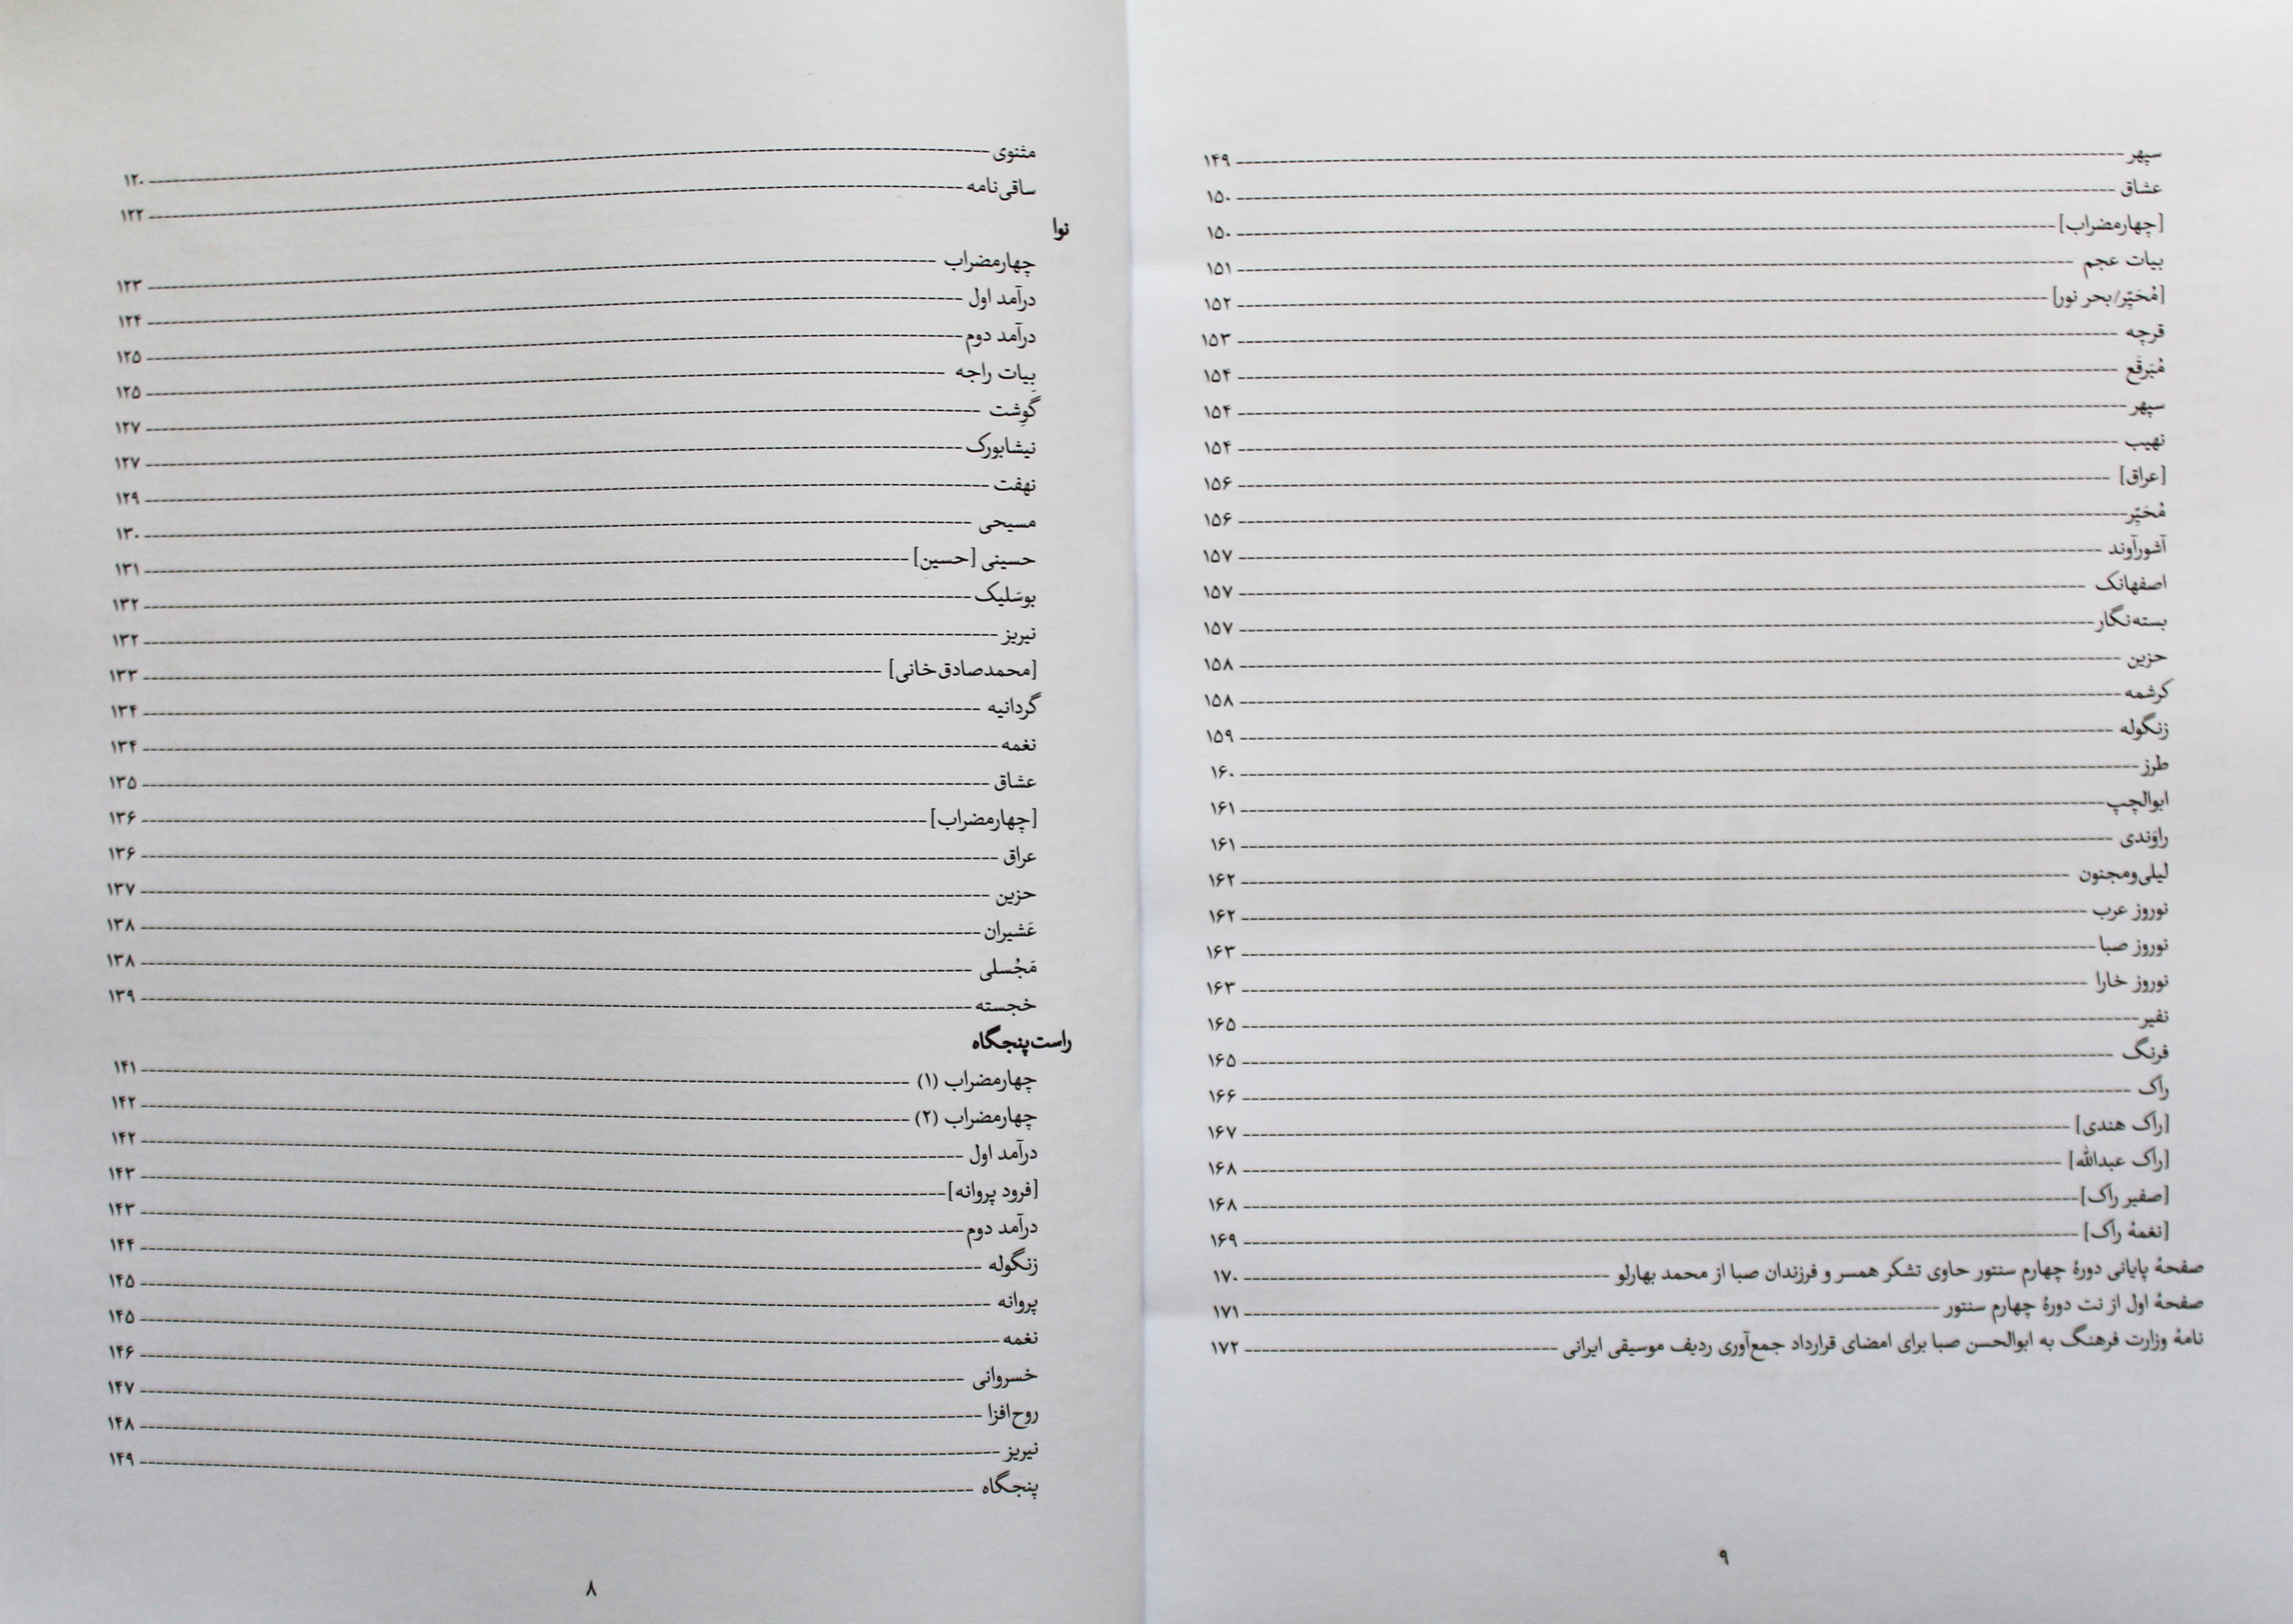 مثنوی ۱۲۰
ساقی‌نامه ۱۲۲
نوا
چهارمضراب ۱۲۳
درآمد اول ۱۲۴
درآمد دوم ۱۲۵
بیات راجه ۱۲۵
گَوِشت ۱۲۷
نیشابورک ۱۲۷
نهفت ۱۲۹
مسیحی ۱۳۰
حسینی [حسین] ۱۳۱
بوسَلیک ۱۳۲
نیریز ۱۳۲
[محمدصادق‌خانی] ۱۳۳
گردانیه ۱۳۴
نغمه ۱۳۴
عشاق ۱۳۵
[چهارمضراب] ۱۳۶
عراق ۱۳۶
حزین ۱۳۷
عَشیران ۱۳۸
مَجُسلی ۱۳۸
خجسته ۱۳۹
راست‌پنجگاه
چهارمضراب (۱) ۱۴۱
چهارمضراب (۲) ۱۴۲
درآمد اول ۱۴۲
[فرود پروانه] ۱۴۳
درآمد دوم ۱۴۳
زنگوله ۱۴۴
پروانه ۱۴۵
نغمه ۱۴۵
خسروانی ۱۴۶
روح‌افزا ۱۴۷
نیریز ۱۴۸
پنجگاه ۱۴۹
۸
سپهر ۱۴۹
عشاق ۱۵۰
[چهارمضراب] ۱۵۰
بیات عجم ۱۵۱
[مُحَیِّر/بحر نور] ۱۵۲
قرچه ۱۵۳
مُبَرقَع ۱۵۴
سپهر ۱۵۴
نهیب ۱۵۴
[عراق] ۱۵۶
مُحَیِّر ۱۵۶
آشورآوند ۱۵۷
اصفهانک ۱۵۷
بسته‌نگار ۱۵۷
حزین ۱۵۸
کرشمه ۱۵۸
زنگوله ۱۵۹
طرز ۱۶۰
ابوالچپ ۱۶۱
راوَندی ۱۶۱
لیلی‌ومجنون ۱۶۲
نوروز عرب ۱۶۲
نوروز صبا ۱۶۳
نوروز خارا ۱۶۳
نفیر ۱۶۵
فرنگ ۱۶۵
راک ۱۶۶
[راک هندی] ۱۶۷
[راک عبدالله] ۱۶۸
[صفیر راک] ۱۶۸
[نغمهٔ راک] ۱۶۹
صفحهٔ پایانی دورهٔ چهارم سنتور حاوی تشکر همسر و فرزندان صبا از محمد بهارلو ۱۷۰
صفحهٔ اول از نت دورهٔ چهارم سنتور ۱۷۱
نامهٔ وزارت فرهنگ به ابوالحسن صبا برای امضای قرارداد جمع‌آوری ردیف موسیقی ایرانی ۱۷۲
۹